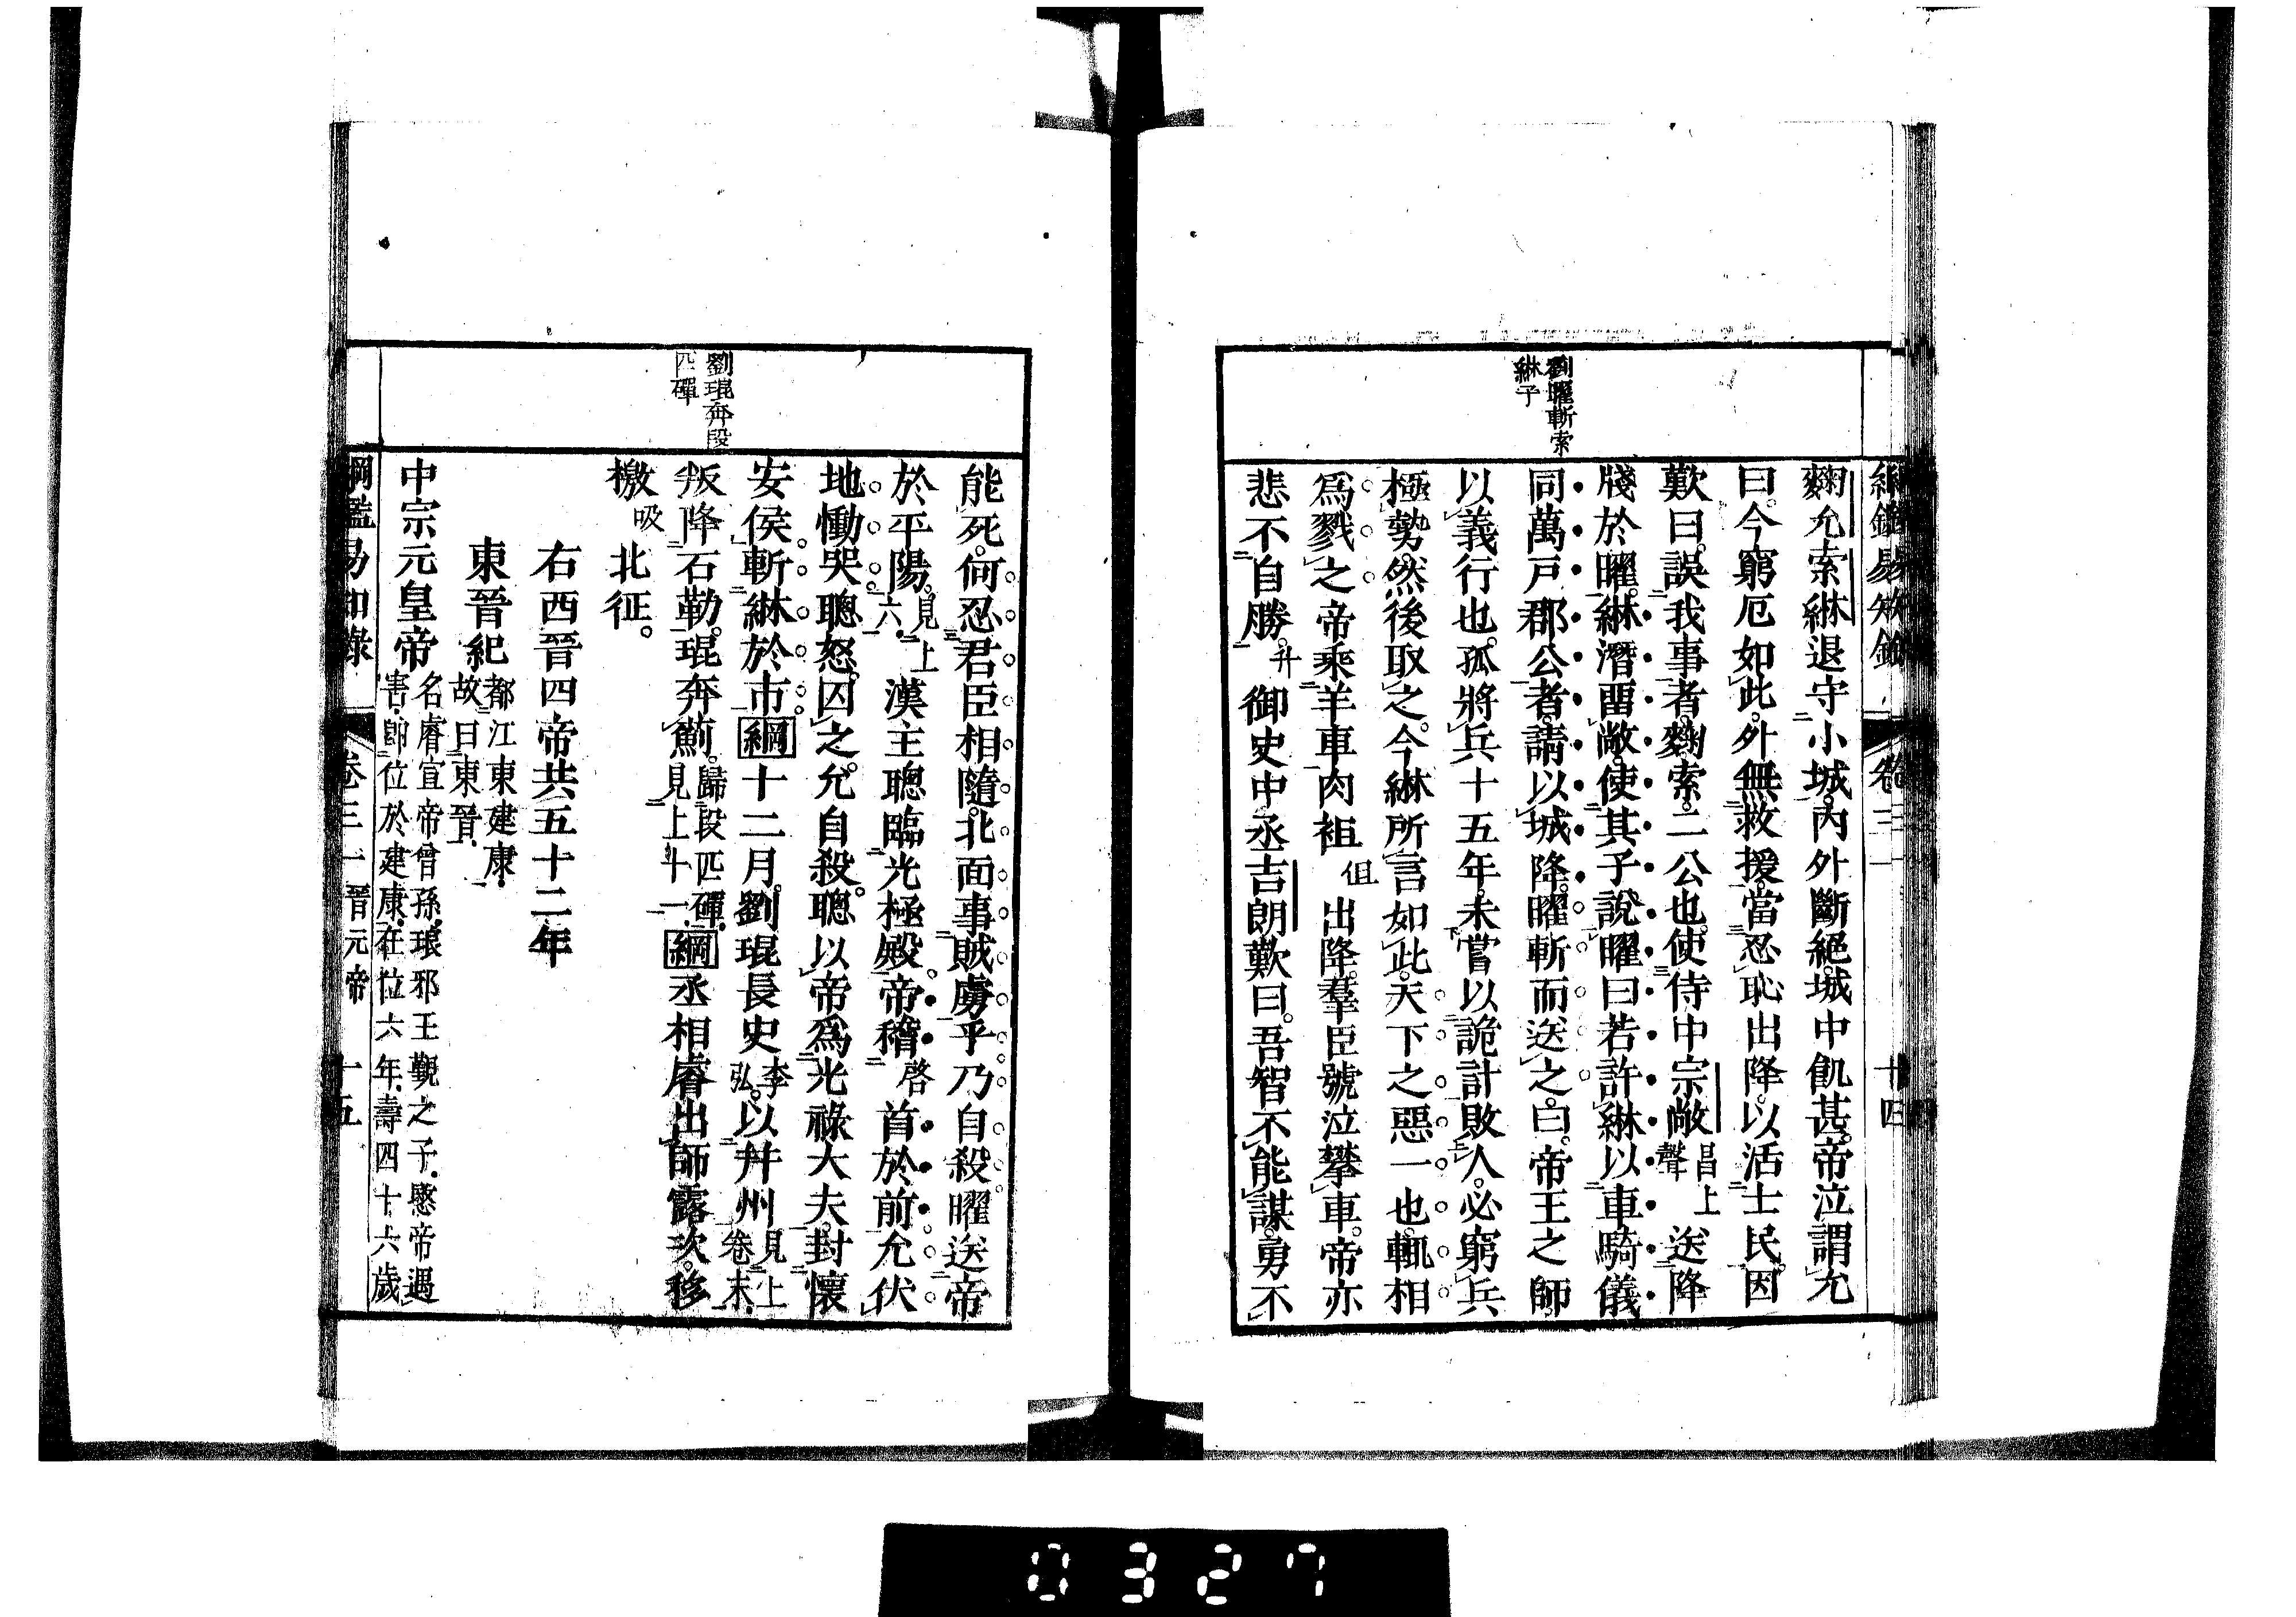 綱鑑易知錄 卷三一 十四
劉曜斬索
綝子
麴允索綝退守小城。內外斷絕。城中飢甚。帝泣謂允
曰。今窮厄如此。外無救援。當忍恥出降。以活士民。因
歎曰。誤我事者。麴索二公也。使侍中宗敞昌上聲送降
牋於曜。綝潛留敞。使其子說曜曰若許綝以車騎儀
同萬戶郡公者。請以城降。曜斬而送之。曰。帝王之師。
以義行也。孤將兵十五年。未嘗以詭計敗人。必窮兵
極勢。然後取之。今綝所言如此。天下之惡一也。輒相
爲戮之帝乘羊車肉袒但出降。羣臣號泣攀車。帝亦
悲不自勝。升御史中丞吉朗歎曰。吾智不能謀。勇不
劉琨奔段
匹磾
能死。何忍君臣相隨。北面事賊虜乎乃自殺曜送帝
於平陽。見上六。漢主聰臨光極殿。帝稽啓首於前允伏
地慟哭。聰怒。囚之。允自殺。聰以帝爲光祿大夫。封懷
安侯。斬綝於市綱十二月。劉琨長史李弘。以幷州見上卷末。
叛降石勒。琨奔薊。歸段匹磾。見上十一。綱丞相睿出師露次。移
檄吸北征。
右西晉四帝共五十二年
東晉紀都江東建康。故曰東晉。
中宗元皇帝名睿宣帝曾孫。琅邪王覲之子。愍帝遇害。卽位於建康。在位六年。壽四十六歲
綱鑑易知錄 卷三一 晉元帝 十五
0327